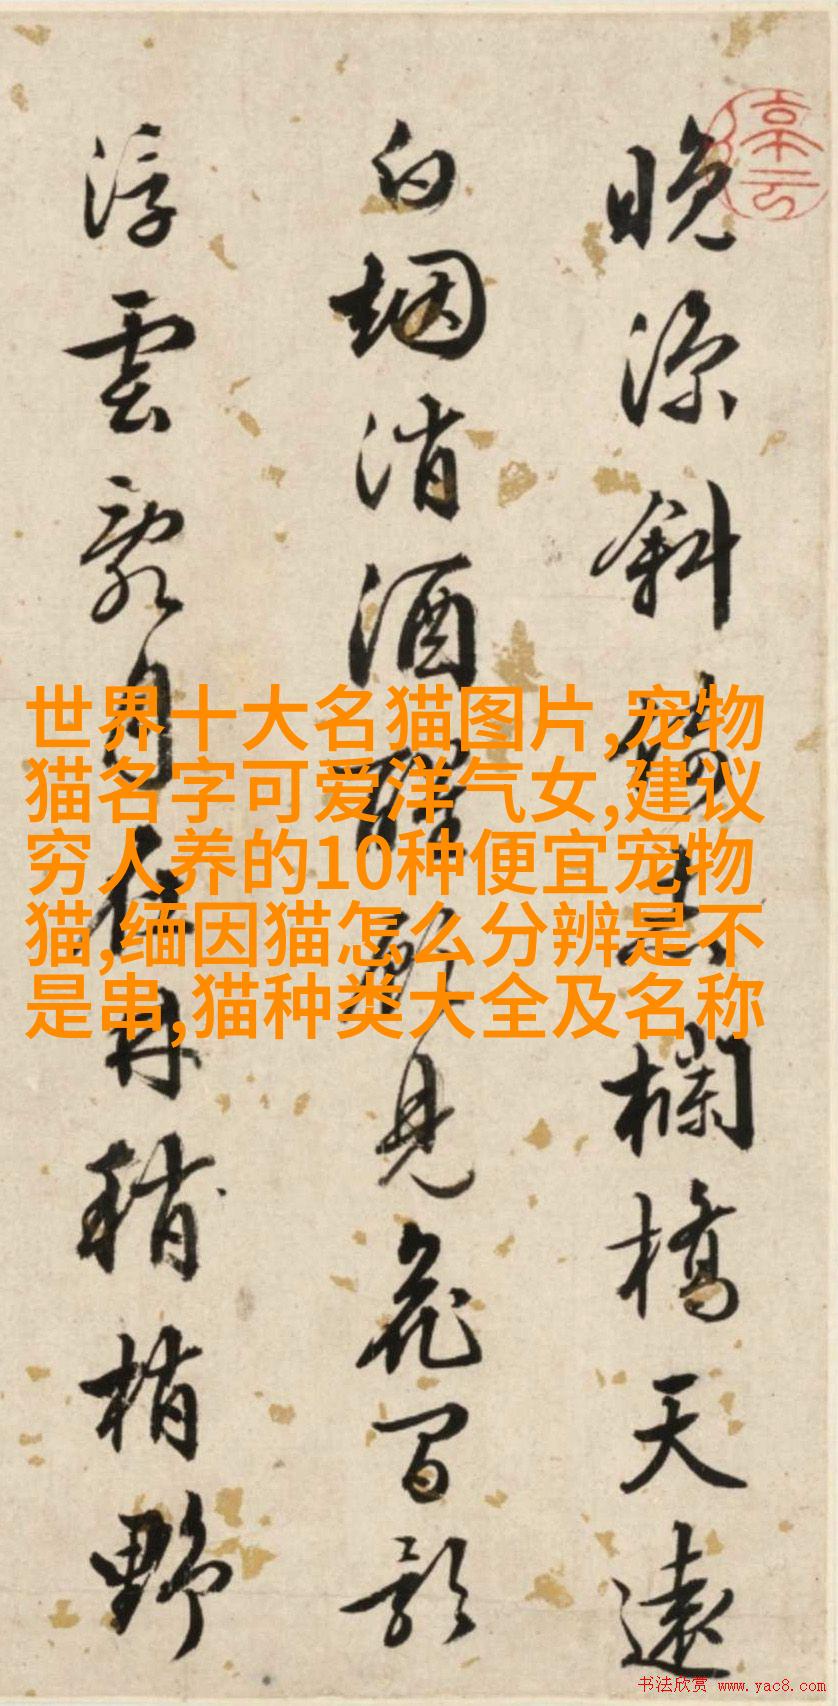 停雲
晚涼斜赤欄橋天遠
白烟消酒醒見花間影
浮雲月在林稍梢野
世界十大名猫图片,宠物
猫名字可爱洋气女,建议
穷人养的10种便宜宠物
猫,缅因猫怎么分辨是不
是串,猫种类大全及名称
书法欣赏 www.yac8.com